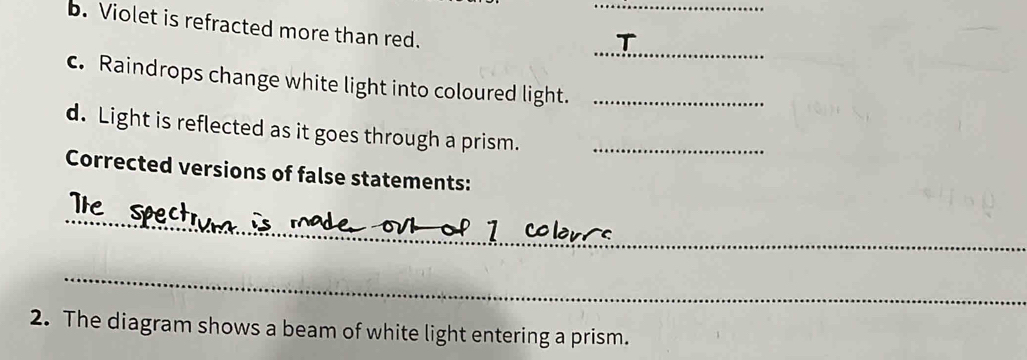 b. Violet is refracted more than red.
T
c. Raindrops change white light into coloured light.
d. Light is reflected as it goes through a prism.
Corrected versions of false statements:
The spectrum is made out of 7 colours
2. The diagram shows a beam of white light entering a prism.